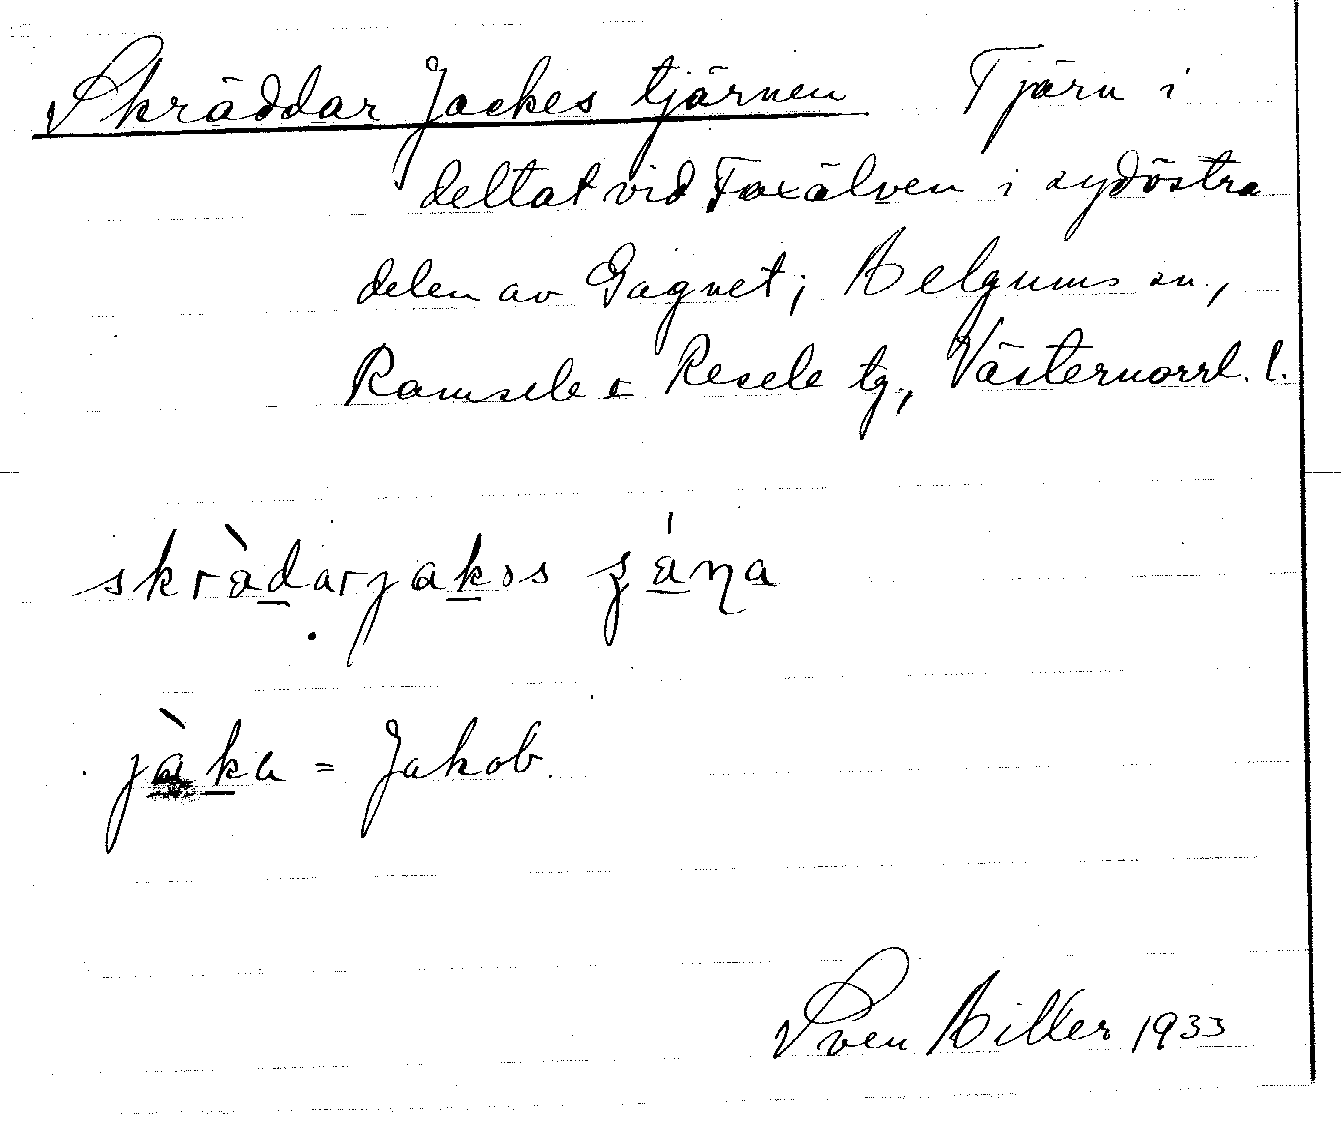 Skräddar Jackes tjärnen Tjärn i
deltat vid Faxälven i sydöstra
delen av Gagnet; Helgums sn.,
Ramsele o Resele tg., Västernorrl. l.
jàka = Jakob.
Sven Hiller 1933